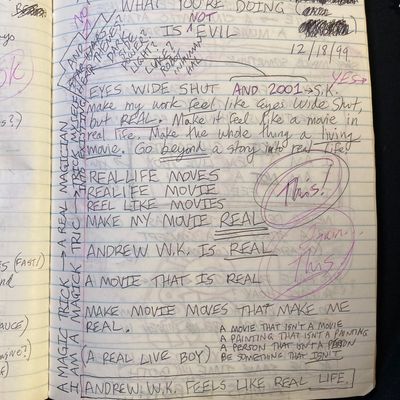 WHAT YOU'RE DOING (
NOT
IS EVIL
12/18/99
YES→
EYES WIDE SHUT AND 2001→S.K.
make my work feel like Eyes Wide Shut,
but REAL. Make it feel like a movie in
real life. Make the whole thing a living
movie. Go beyond a story into real life!
REAL LIFE MOVES
REAL LIFE MOVIE
REEL LIKE MOVIES
MAKE MY MOVIE REAL
This!
ANDREW W.K. IS REAL
This
A MOVIE THAT IS REAL
MAKE MOVIE MOVES THAT MAKE ME
REAL.
A MOVIE THAT ISN'T A MOVIE
A PAINTING THAT ISN'T A PAINTING
A PERSON THAT ISN'T A PERSON
(A REAL LIVE BOY)
BE SOMETHING THAT ISN'T
ANDREW W.K. FEELS LIKE REAL LIFE.
A MAGIC TRICK → A REAL MAGICIAN
I AM A MAGICK TRIC